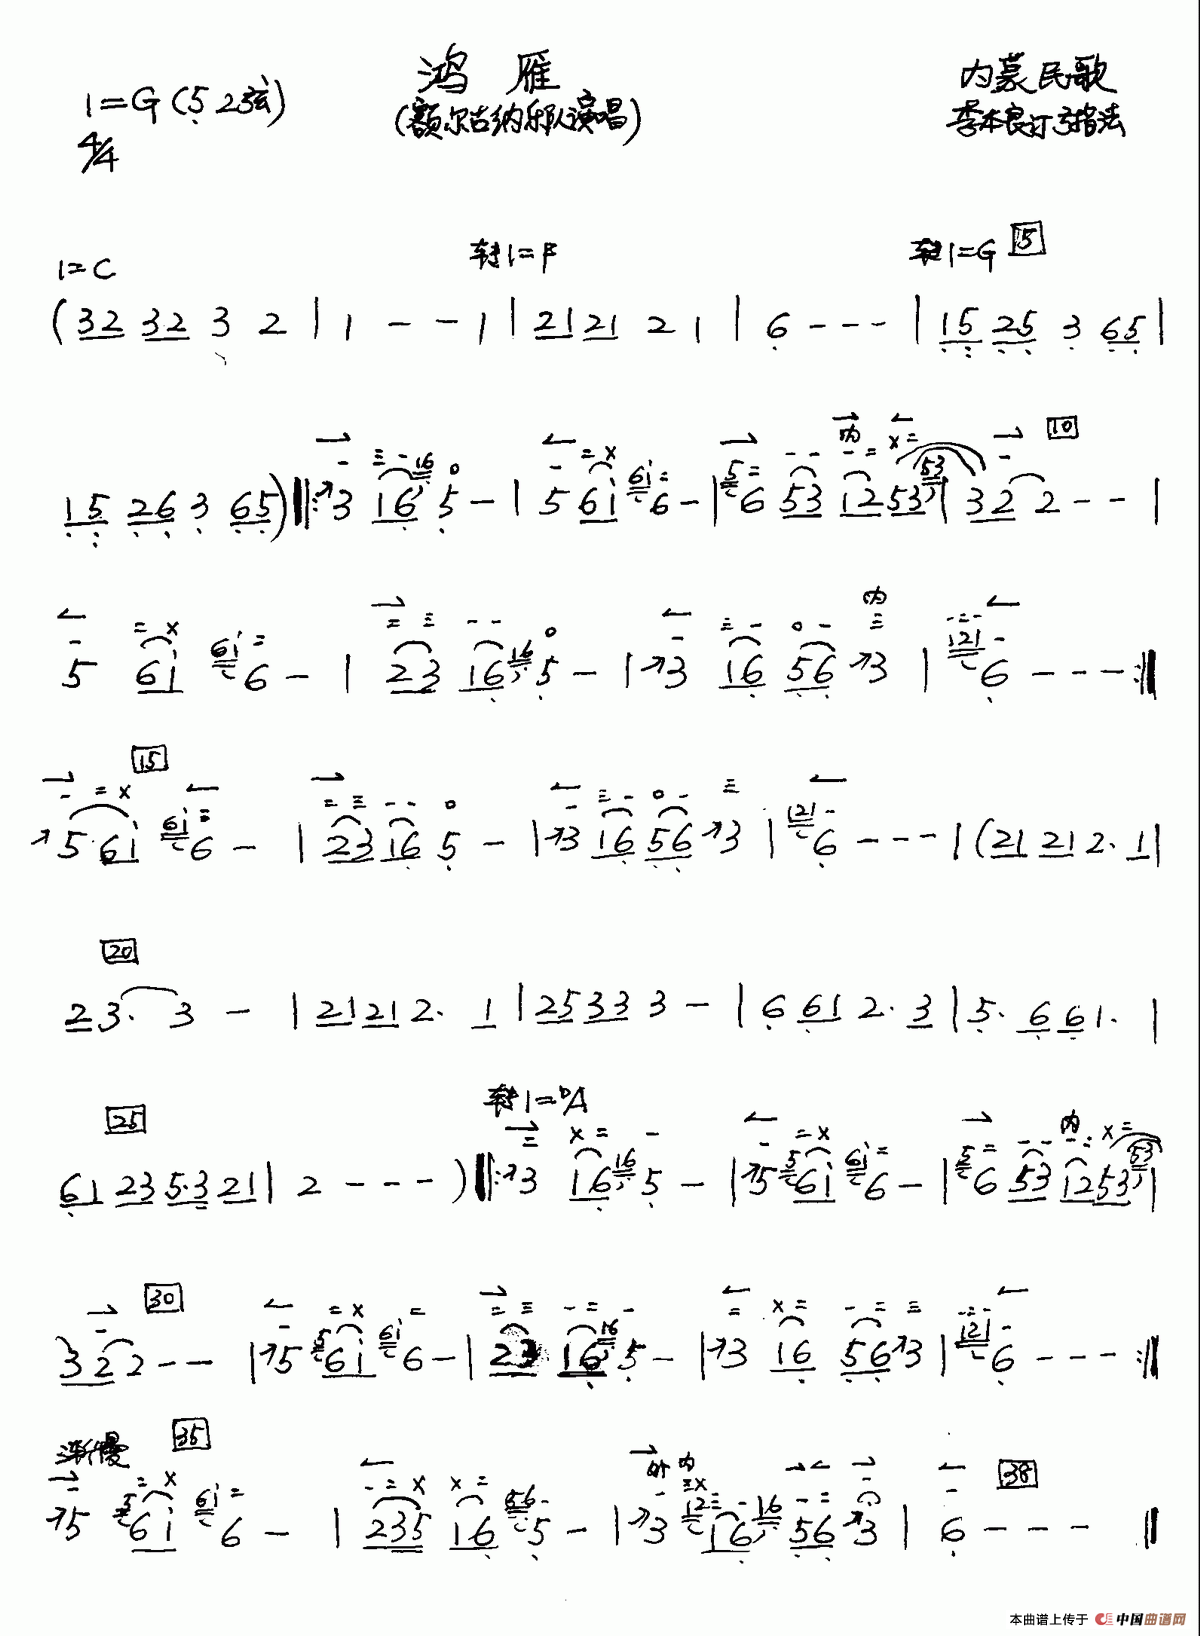 鸿 雁
内蒙民歌
1=G(5 2弦)
(额尔古纳乐队演唱)
李本良订弓指法
4/4
1=C 转1=F 转1=G 5
(32 32 3 2 | 1 - - 1 | 21 21 2 1 | 6 - - - | 15 25 3 65 |
15 26 3 65) ‖: 3 16 5 - | 5 61 6 - | 6 53 12 53 | 32 2 - - |
10
5 61 6 - | 23 16 5 - | 3 16 56 3 | 6 - - - :‖
15
5 61 6 - | 23 16 5 - | 3 16 56 3 | 6 - - - | (21 21 2. 1 |
20
23. 3 - | 21 21 2. 1 | 25 33 3 - | 6 61 2. 3 | 5. 6 61. |
25 转1=bA
61 23 5.3 21 | 2 - - - ) ‖: 3 16 5 - | 5 61 6 - | 6 53 12 53 |
30
32 2 - - | 5 61 6 - | 23 16 5 - | 3 16 56 3 | 6 - - - :‖
渐慢 35 外 内 38
5 61 6 - | 235 16 5 - | 3 16 56 3 | 6 - - - ‖
本曲谱上传于 中国曲谱网